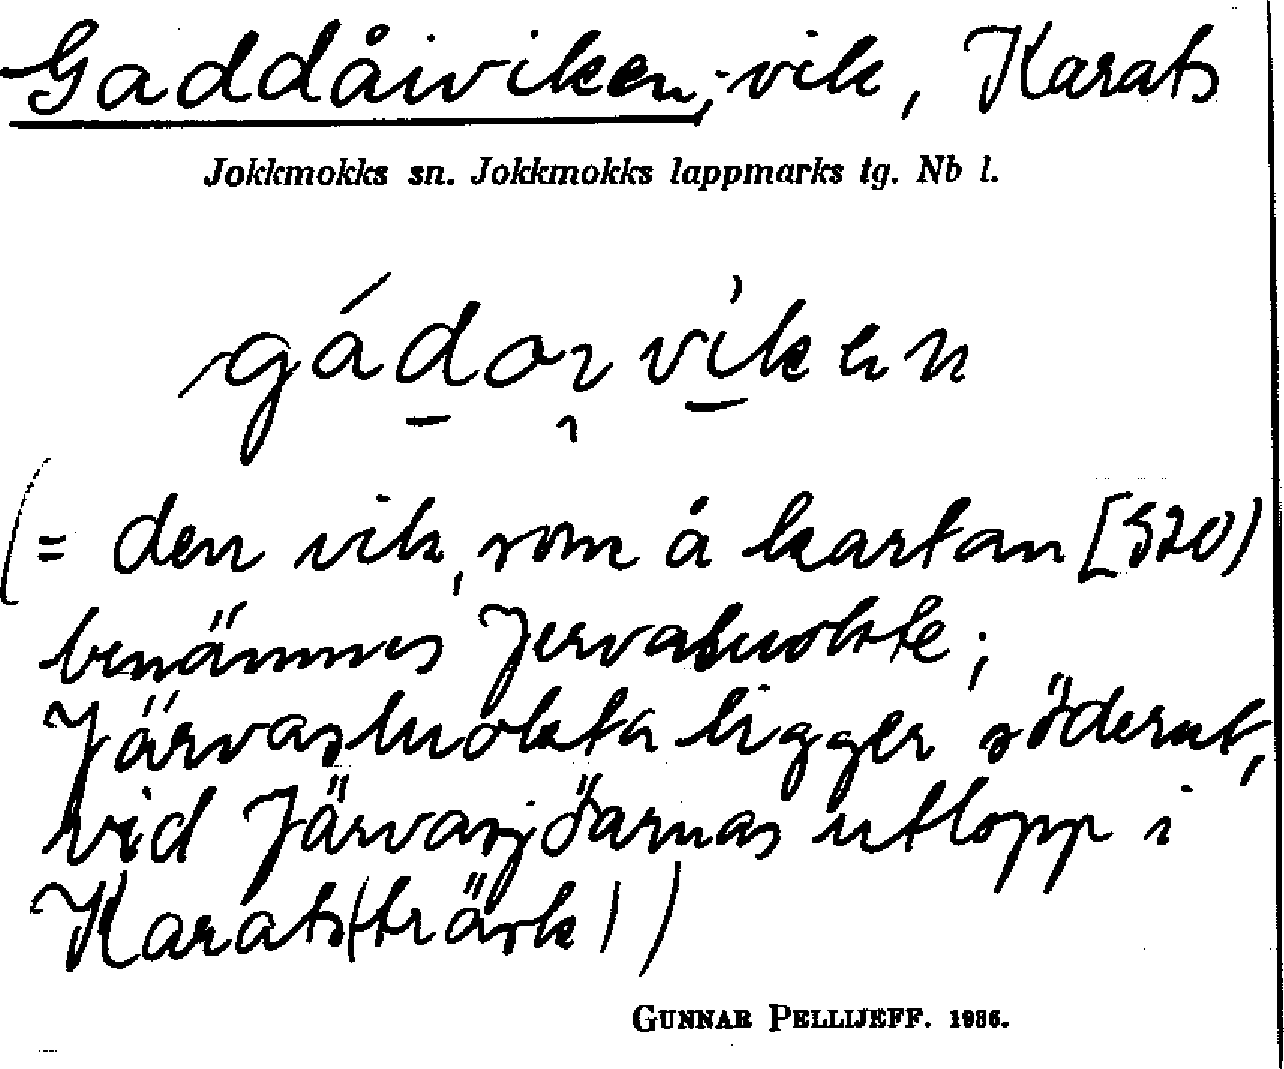 Gaddåiviken, vik, Karats
Jokkmokks sn. Jokkmokks lappmarks tg. Nb l.
gádoi̯viken
(= den vik, som å kartan [S20)
benämnes Jervasluokte;
Järvasluokta ligger söderut,
vid Järvasjöarnas utlopp i
Karats(träsk))
GUNNAR PELLIJEFF. 1936.